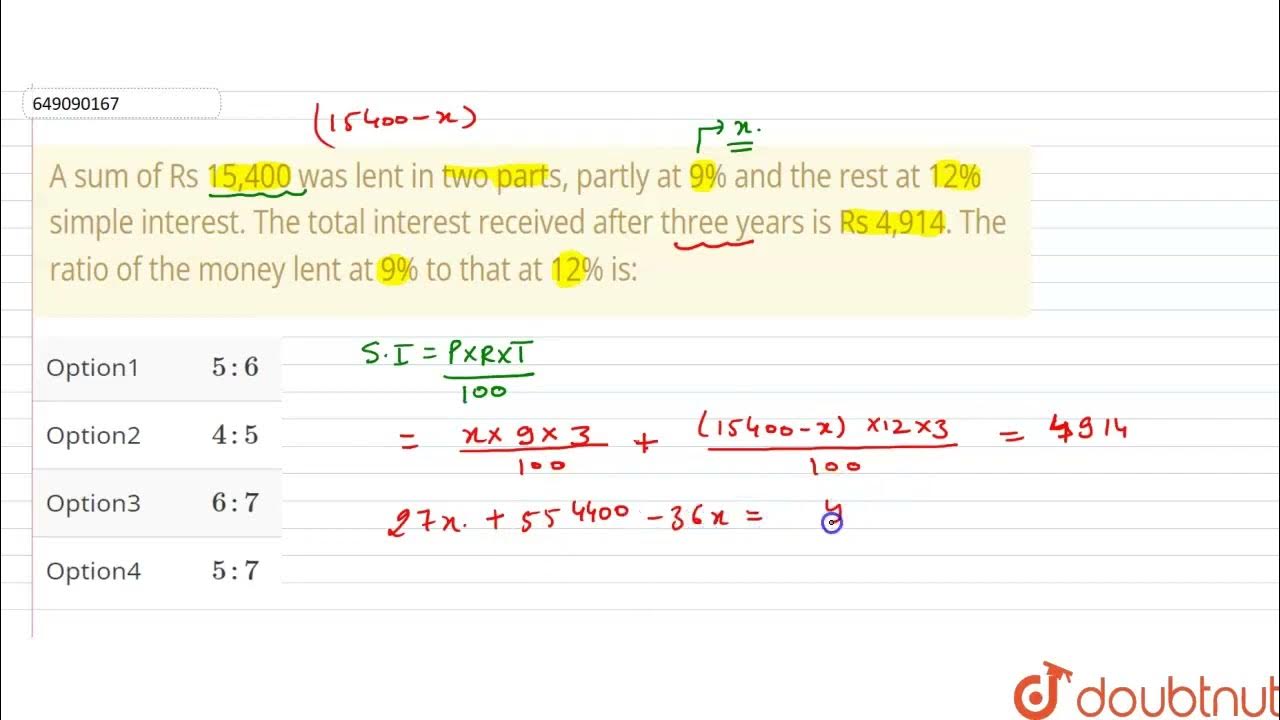 649090167
(15400-x)
→ x.
A sum of Rs 15,400 was lent in two parts, partly at 9% and the rest at 12%
simple interest. The total interest received after three years is Rs 4,914. The
ratio of the money lent at 9% to that at 12% is:
Option1 5 : 6
Option2 4 : 5
Option3 6 : 7
Option4 5 : 7
S.I = P×R×T
100
= x× 9×3 + (15400-x) ×12×3 = 4914
100 100
27x. + 554400 - 36x = 4
doubtnut